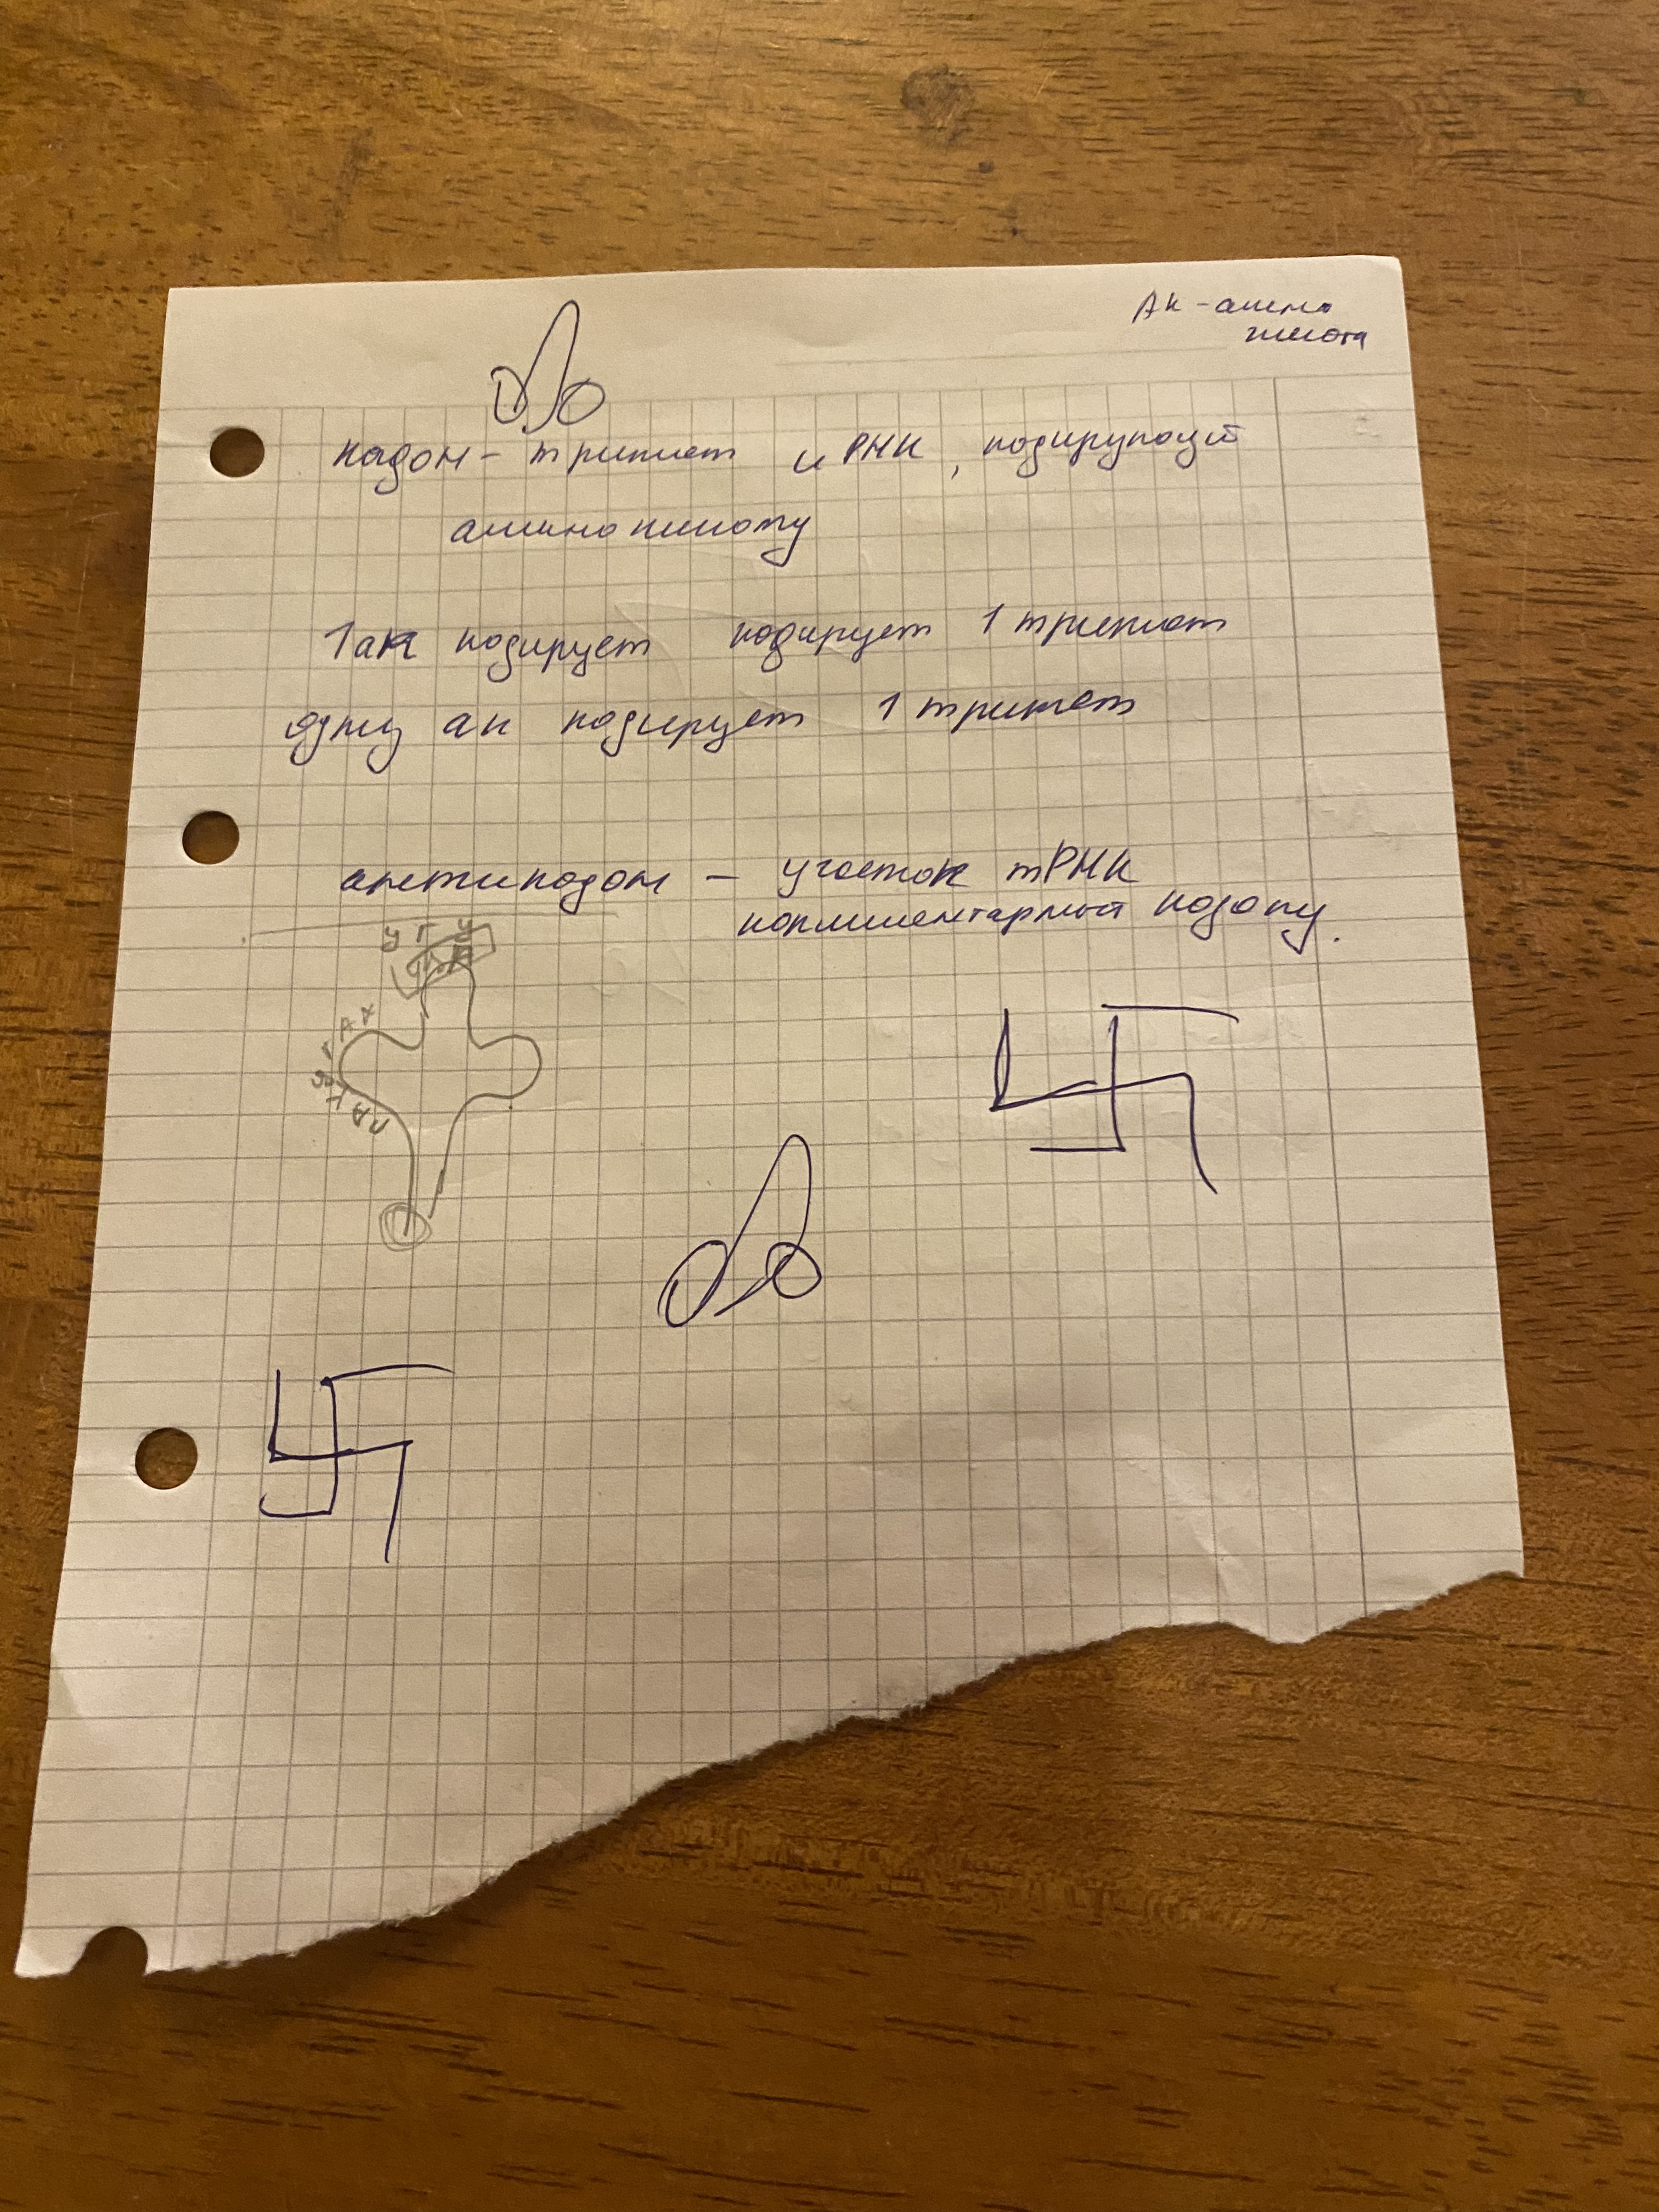 АК - амино
кислота
кодон - триплет и РНК, кодирующий
аминокислоту
1 ак кодирует кодирует 1 триплет
одну ак кодирует 1 триплет
антикодон - участок тРНК
комплиментарный кодону.
У Г У